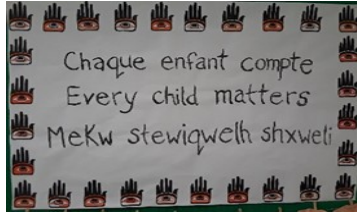 Chaque enfant compte
Every child matters
Mekw stewiqwelh shxweli